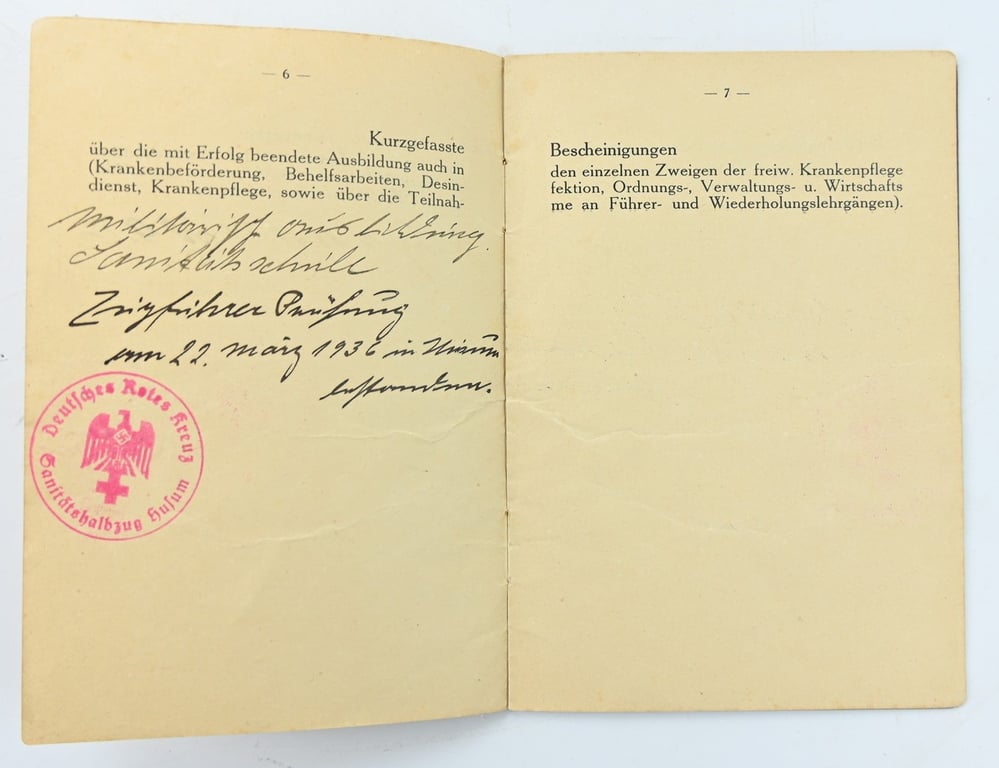 — 6 —
Kurzgefasste
über die mit Erfolg beendete Ausbildung auch in
(Krankenbeförderung, Behelfsarbeiten, Desin-
dienst, Krankenpflege, sowie über die Teilnah-
Militärisch ausbildung.
Sanitätsschule
Zugführer Prüfung
am 22. März 1936 in Husum
bestanden.
Deutsches Rotes Kreuz
Sanitätshalbzug Husum
— 7 —
Bescheinigungen
den einzelnen Zweigen der freiw. Krankenpflege
fektion, Ordnungs-, Verwaltungs- u. Wirtschafts
me an Führer- und Wiederholungslehrgängen).